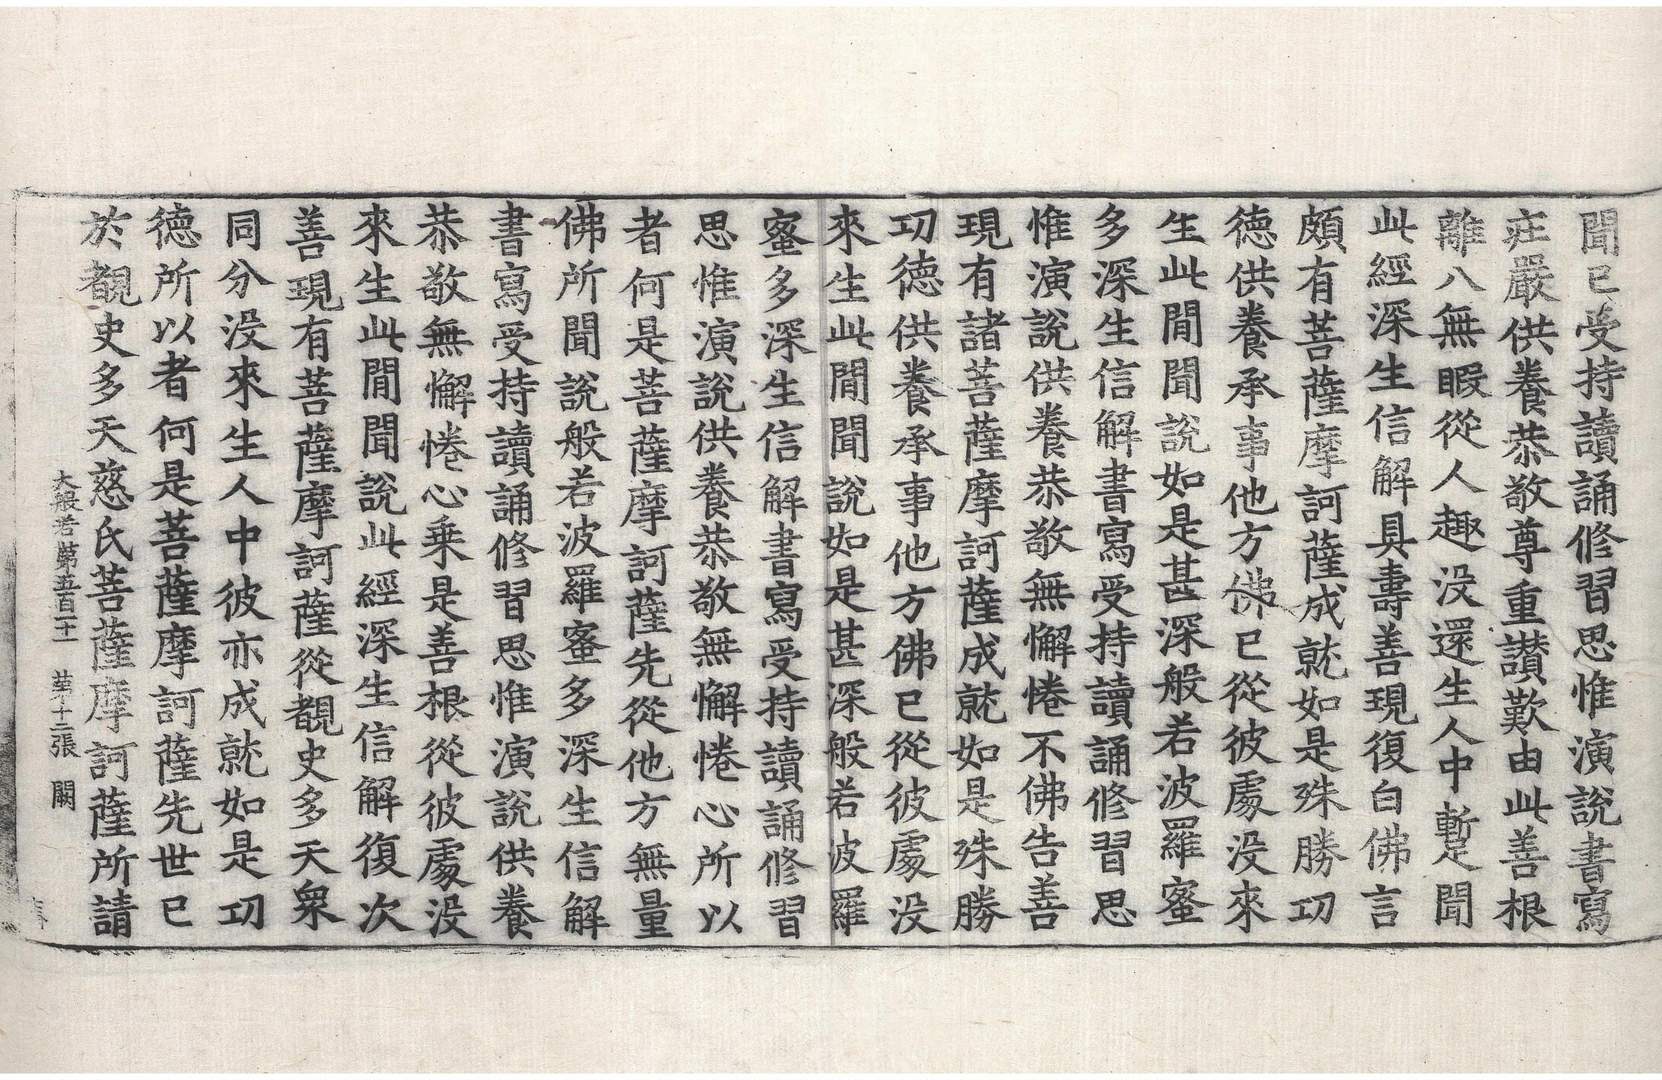 聞已受持讀誦修習思惟演說書寫
庄嚴供養恭敬尊重讚歎由此善根
離八無暇從人趣没還生人中暫聞
此經深生信解具壽善現復白佛言
頗有菩薩摩訶薩成就如是殊勝功
德供養承事他方佛已從彼處没來
生此間聞說如是甚深般若波羅蜜
多深生信解書寫受持讀誦修習思
惟演說供養恭敬無懈惓不佛告善
現有諸菩薩摩訶薩成就如是殊勝
功德供養承事他方佛已從彼處没
來生此間聞說如是甚深般若波羅
蜜多深生信解書寫受持讀誦修習
思惟演說供養恭敬無懈惓心所以
者何是菩薩摩訶薩先從他方無量
佛所聞說般若波羅蜜多深生信解
書寫受持讀誦修習思惟演說供養
恭敬無懈惓心乘是善根從彼處没
來生此間聞說此經深生信解復次
善現有菩薩摩訶薩從覩史多天衆
同分没來生人中彼亦成就如是功
德所以者何是菩薩摩訶薩先世已
於覩史多天慈氏菩薩摩訶薩所請
大般若第五百二十一 第十二張 闕